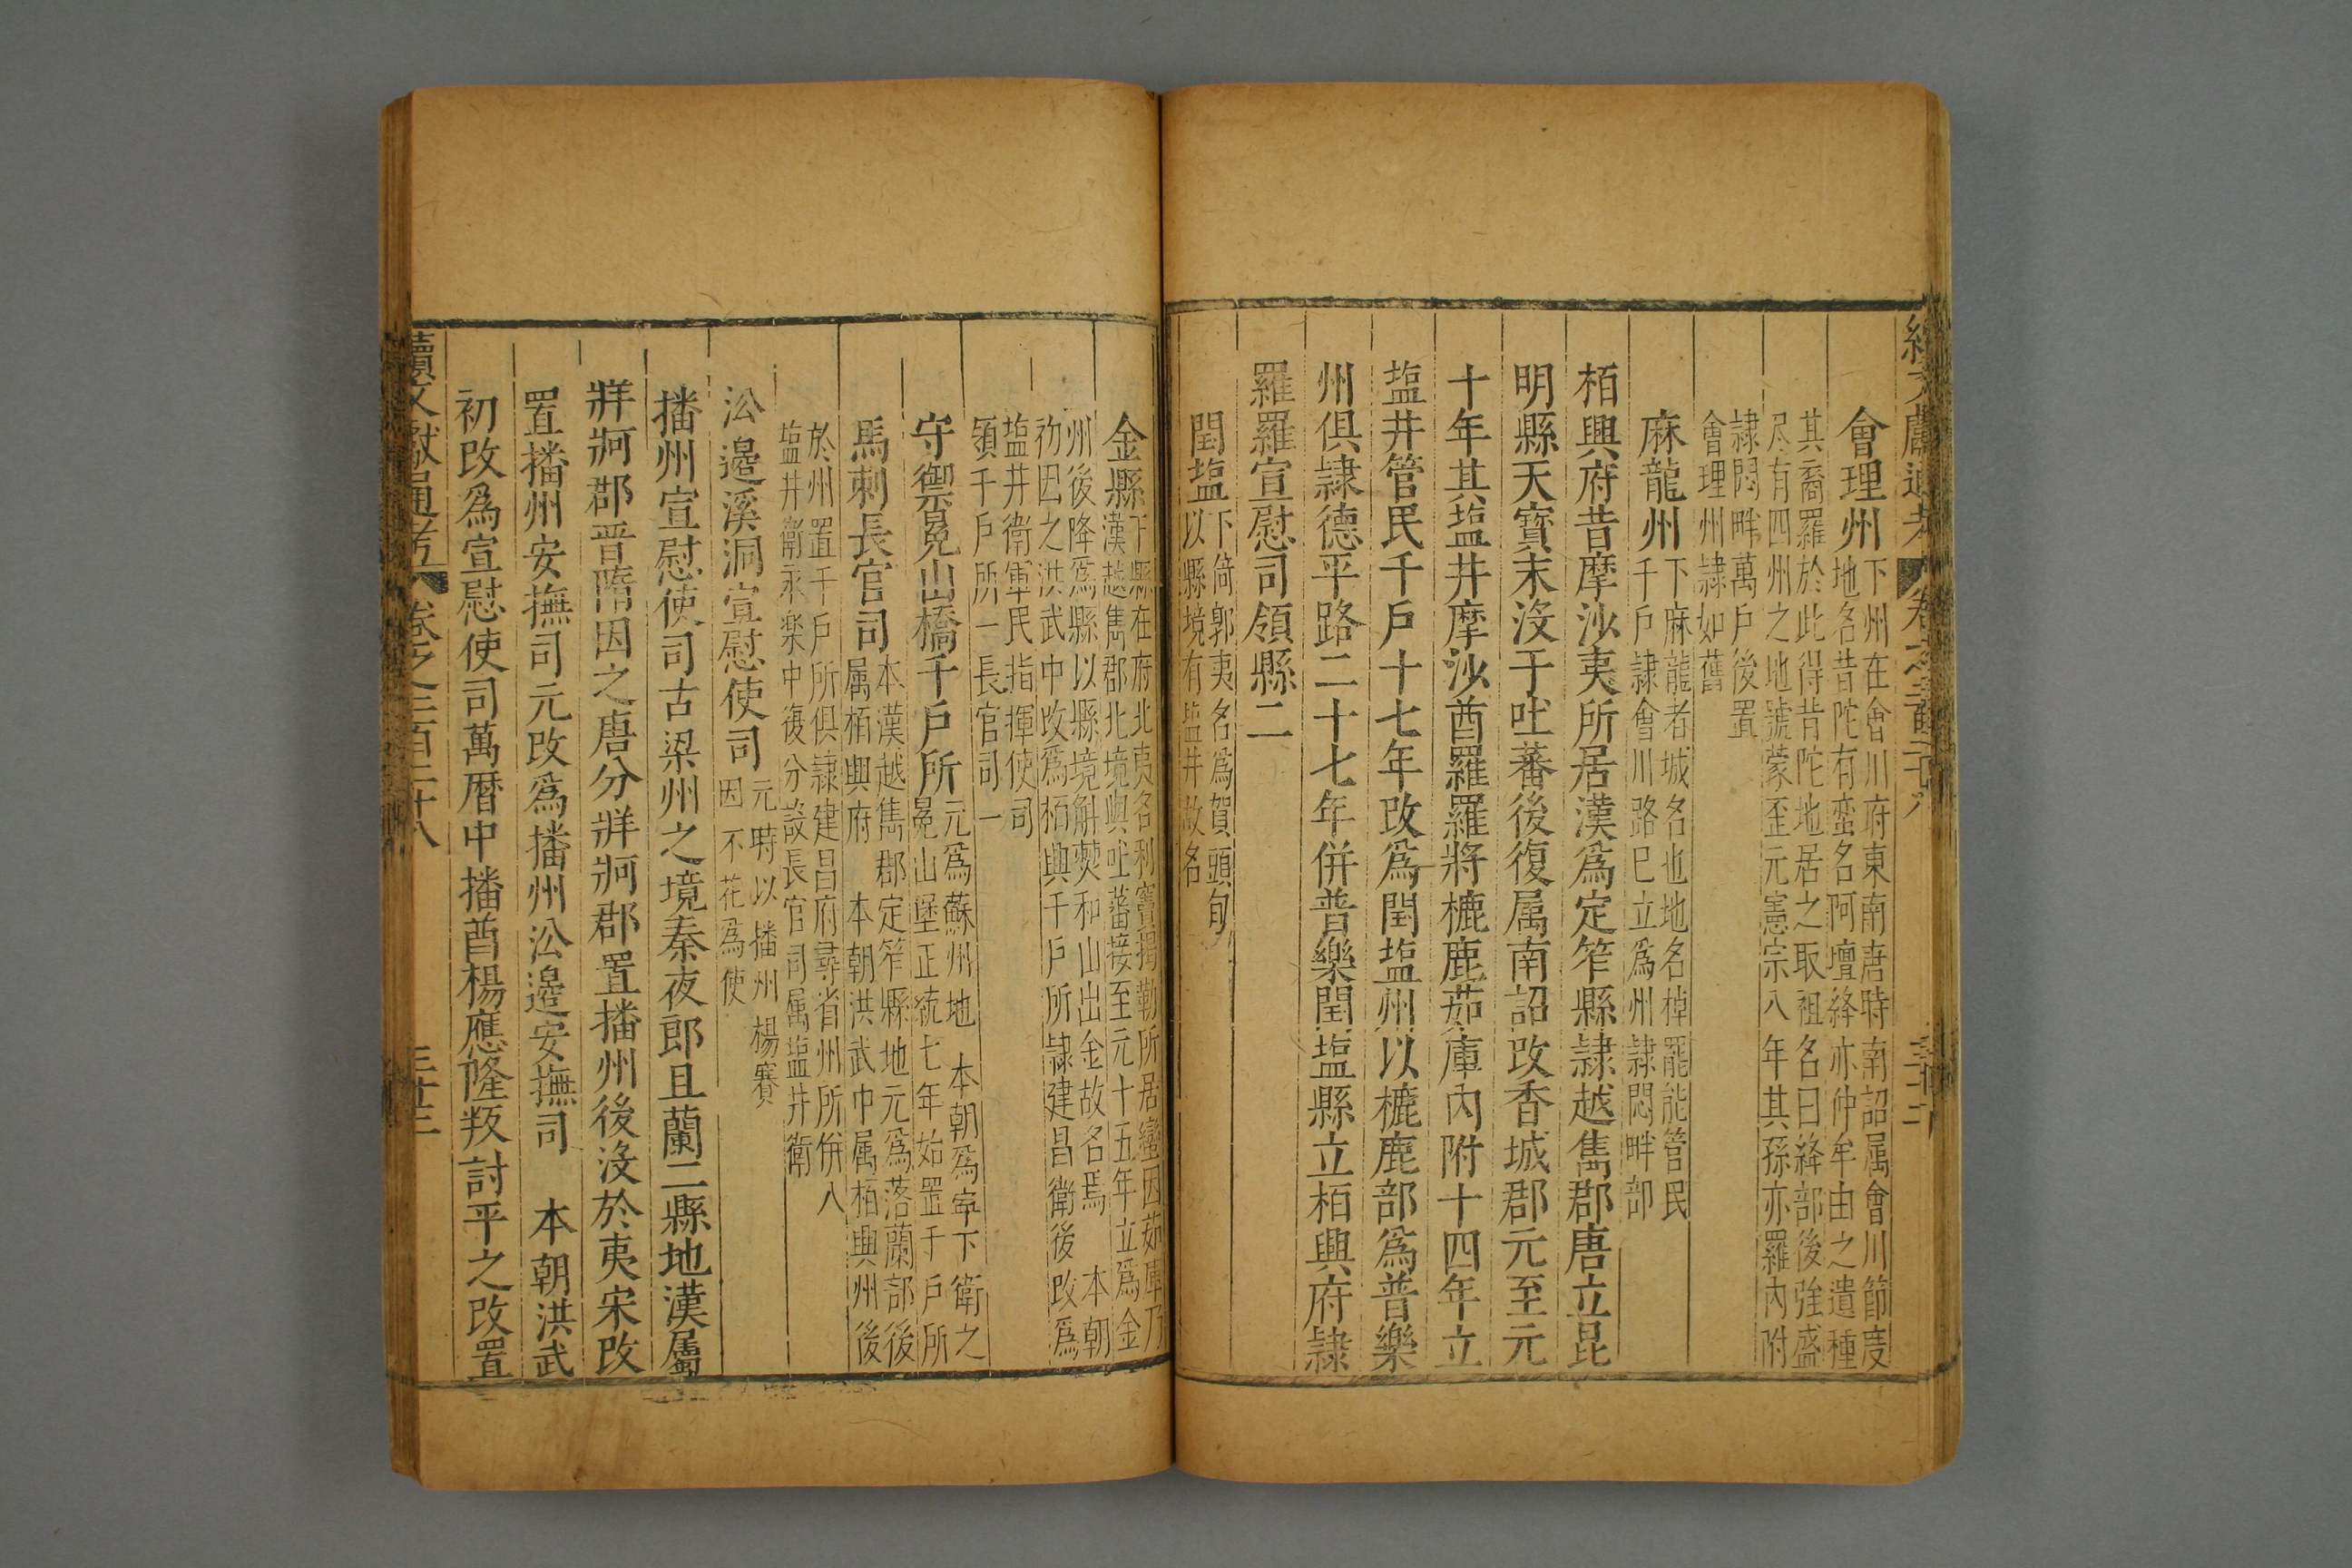 會理州
下州在會川府東南唐時南詔属會川節度
地名昔陀有蛮名阿壇絳亦仲牟由之遺種
其裔羅於此得昔陀地居之取祖名曰絳部後強盛
尽有四州之地號蒙歪元憲宗八年其孫亦羅內附
隷悶畔萬戶後置
會理州隷如舊
麻龍州
下麻龍者城名也地名棹罷能管民
千戶隷會川路巳立爲州隷悶畔部
栢興府昔摩沙夷所居漢爲定笮縣隷越雋郡唐立昆
明縣天寳末沒于吐蕃後復属南詔改香城郡元至元
十年其塩井摩沙酋羅羅將樚鹿茹庫內附十四年立
塩井管民千戶十七年改爲閏塩州以樚鹿部爲普樂
州俱隷德平路二十七年併普樂閏塩縣立栢興府隷
羅羅宣慰司領縣二
閏塩
下倚郭夷名爲賀頭甸
以縣境有塩井故名
金縣
下縣在府北夷名利寳揭勒所居蠻因茹庫乃
漢越雋郡北境與吐蕃接至元十五年立爲金
州後降爲縣以縣境斛㷒和山出金故名焉 本朝
初因之洪武中改爲栢興千戶所隷建昌衛後改爲
塩井衛軍民指揮使司
領千戶所一長官司一
守禦冕山橋千戶所
元爲蘇州地 本朝爲寜下衛之
冕山堡正統七年始置千戶所
馬剌長官司
本漢越雋郡定笮縣地元爲落蘭部後
属栢興府 本朝洪武中属栢興州後
於州置千戶所俱隷建昌府尋省州所併入
塩井衛永楽中復分設長官司属塩井衛
㳂邊溪洞宣慰使司
元時以播州楊賽
因不花爲使
播州宣慰使司古梁州之境秦夜郎且蘭二縣地漢屬
牂牁郡晉隋因之唐分牂牁郡置播州後沒於夷宋改
置播州安撫司元改爲播州㳂邊安撫司 本朝洪武
初改爲宣慰使司萬曆中播酋楊應隆叛討平之改置
續文獻通考 卷之二百二十八